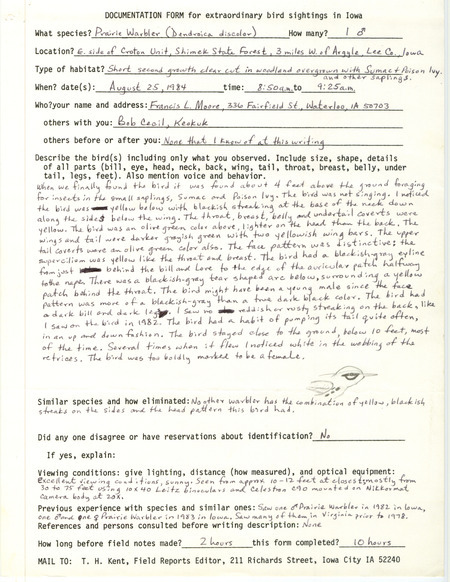 DOCUMENTATION FORM for extraordinary bird sightings in Iowa
What species? Prairie Warbler (Dendroica discolor) How many? 1 ♂
Location? E. side of Croton Unit, Shimek State Forest, 3 miles W. of Argyle, Lee Co. Iowa
Type of habitat? Short second growth clear cut in woodland overgrown with Sumac + Poison Ivy.
and other saplings.
When? date(s): August 25, 1984 time: 8:50 a.m. to 9:25 a.m.
Who?your name and address: Francis L. Moore, 336 Fairfield St., Waterloo, IA 50703
others with you: Bob Cecil, Keokuk
others before or after you: None that I know of at this writing
Describe the bird(s) including only what you observed. Include size, shape, details
of all parts (bill, eye, head, neck, back, wing, tail, throat, breast, belly, under
tail, legs, feet). Also mention voice and behavior.
When we finally found the bird it was found about 4 feet above the ground foraging
for insects in the small saplings, Sumac and Poison Ivy. The bird was not singing. I noticed
the bird was yellow below with blackish streaking at the base of the neck down
along the sides below the wing. The throat, breast, belly and undertail coverts were
yellow. The bird was an olive green color above, lighter on the head than the back. The
wings and tail were darker grayish green with two yellowish wing bars. The upper
tail coverts were an olive green color also. The face pattern was distinctive; the
supercilium was yellow like the throat and breast. The bird had a blackish-gray eyline
from just behind the bill and lore to the edge of the auricular patch halfway
to the nape. There was a blackish-grey tear shaped arc below, surrounding a yellow
patch behind the throat. The bird might have been a young male since the face
pattern was more of a blackish-gray than a true dark black color. The bird had
a dark bill and dark legs. I saw no reddish or rusty streaking on the back, like
I saw on the bird in 1982. The bird had a habit of pumping its tail quite often,
in an up and down fashion. The bird stayed close to the ground, below 10 feet, most
of the time. Several times when it flew I noticed white in the webbing of the
retrices. The bird was too boldly marked to be a female.
Similar species and how eliminated: No other warbler has the combination of yellow, blackish
streaks on the sides and the head pattern this bird had.
Did any one disagree or have reservations about identification? No
If yes, explain:
Viewing conditions: give lighting, distance (how measured), and optical equipment:
Excellent viewing conditions, sunny. Seen from approx 10-12 feet at closest, mostly from
30 to 75 feet using 10x40 Leitz binoculars and Celestron C90 mounted on Nikkormat
camera body at 20x.
Previous experience with species and similar ones: Saw one ♂ Prairie Warbler in 1982 in Iowa,
one ♂ and one ♀ Prairie Warbler in 1983 in Iowa. Saw many of them in Virginia prior to 1978.
References and persons consulted before writing description: None
How long before field notes made? 2 hours this form completed? 10 hours
MAIL TO: T. H. Kent, Field Reports Editor, 211 Richards Street, Iowa City IA 52240